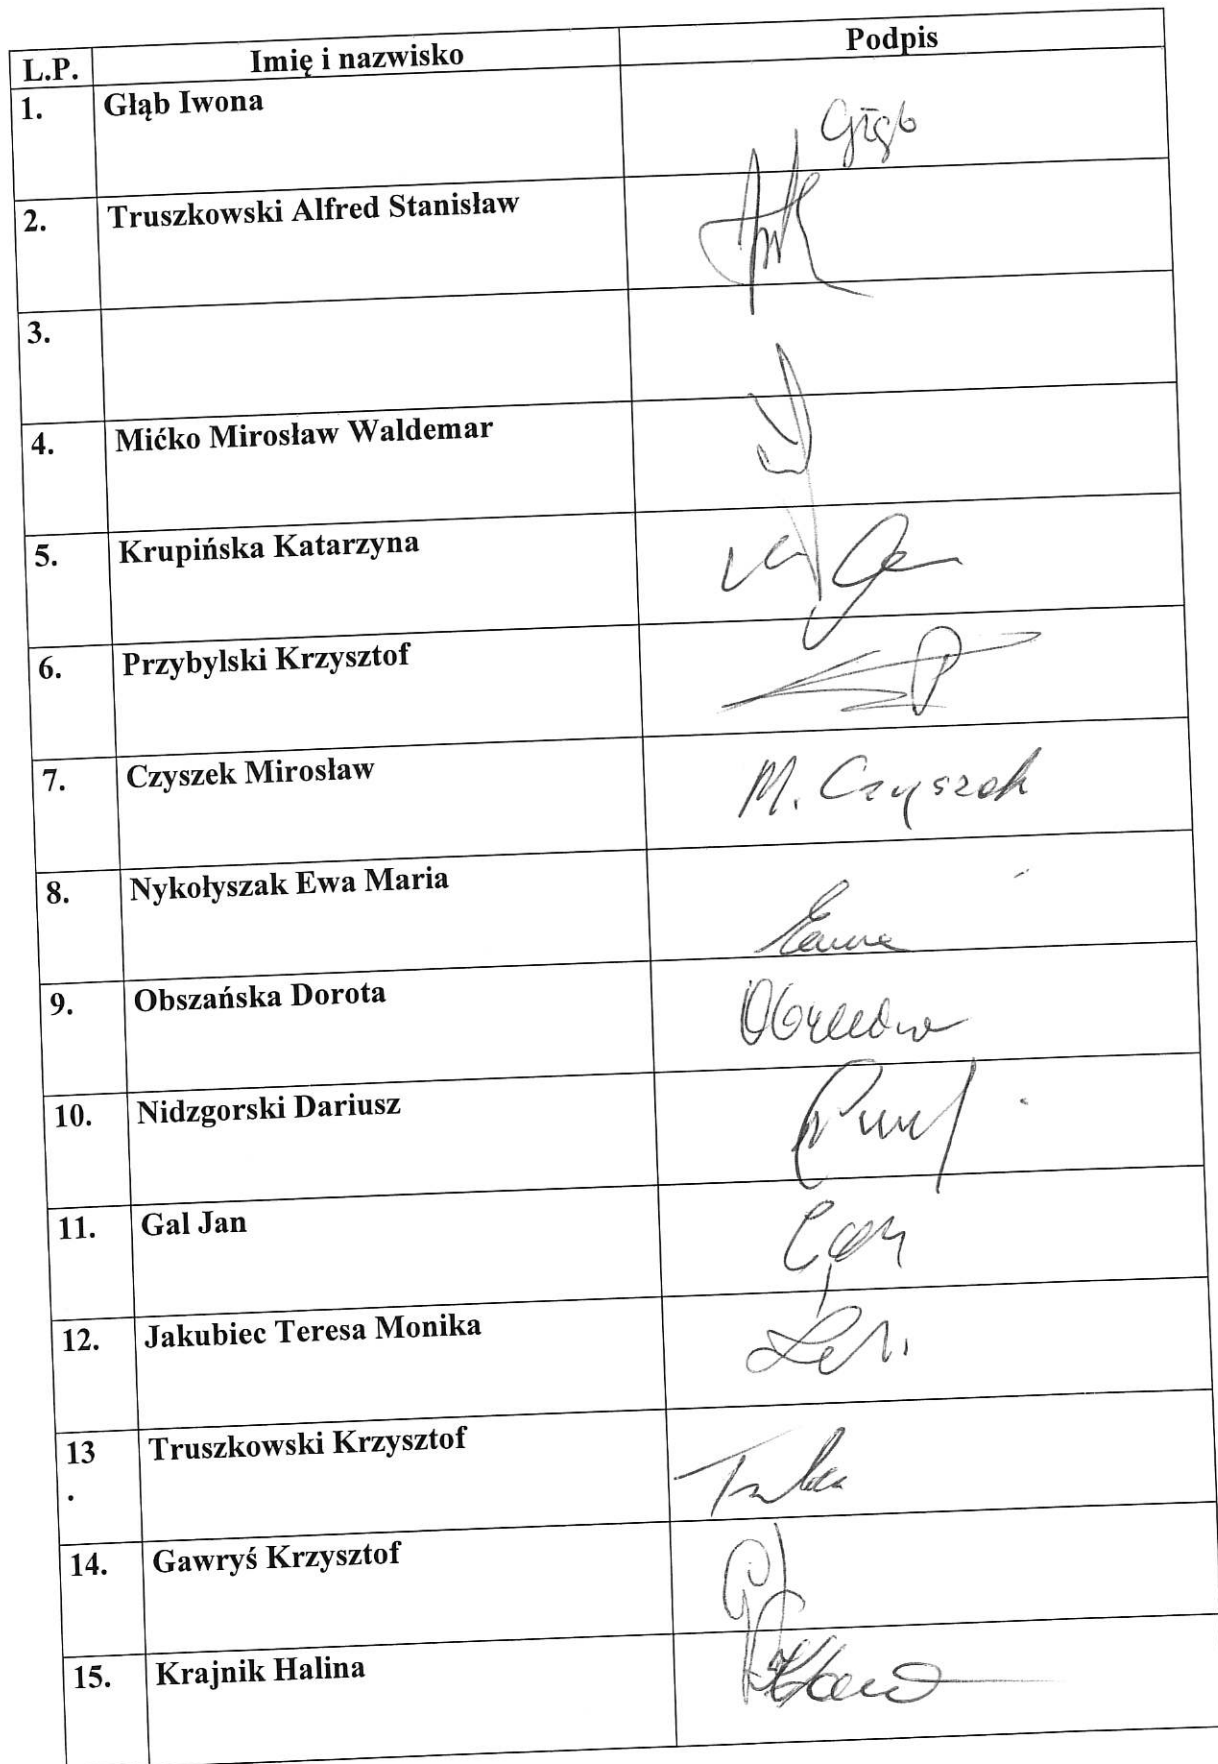 L.P. Imię i nazwisko Podpis
1. Głąb Iwona Głąb
2. Truszkowski Alfred Stanisław
3.
4. Mićko Mirosław Waldemar
5. Krupińska Katarzyna
6. Przybylski Krzysztof
7. Czyszek Mirosław M. Czyszek
8. Nykołyszak Ewa Maria
9. Obszańska Dorota
10. Nidzgorski Dariusz
11. Gal Jan
12. Jakubiec Teresa Monika
13 Truszkowski Krzysztof
.
14. Gawryś Krzysztof
15. Krajnik Halina